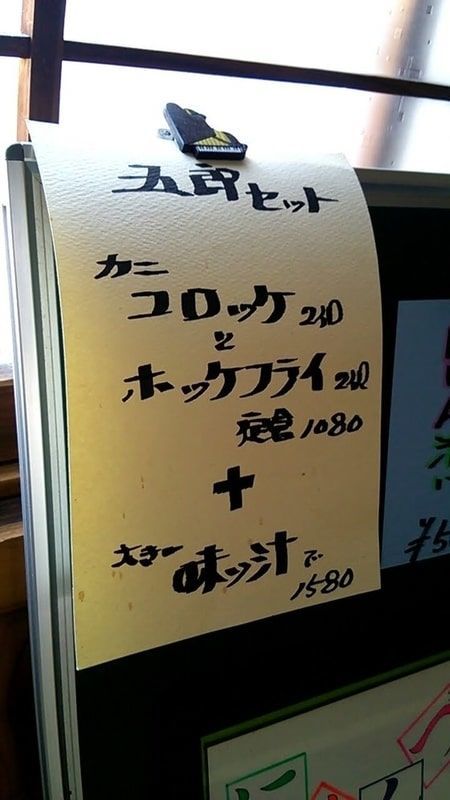 五郎セット
カニ
コロッケ 2ヶ
と
ホッケフライ 2ヶ
定食 1080
+
大きー 味ッ汁で
1580
¥5